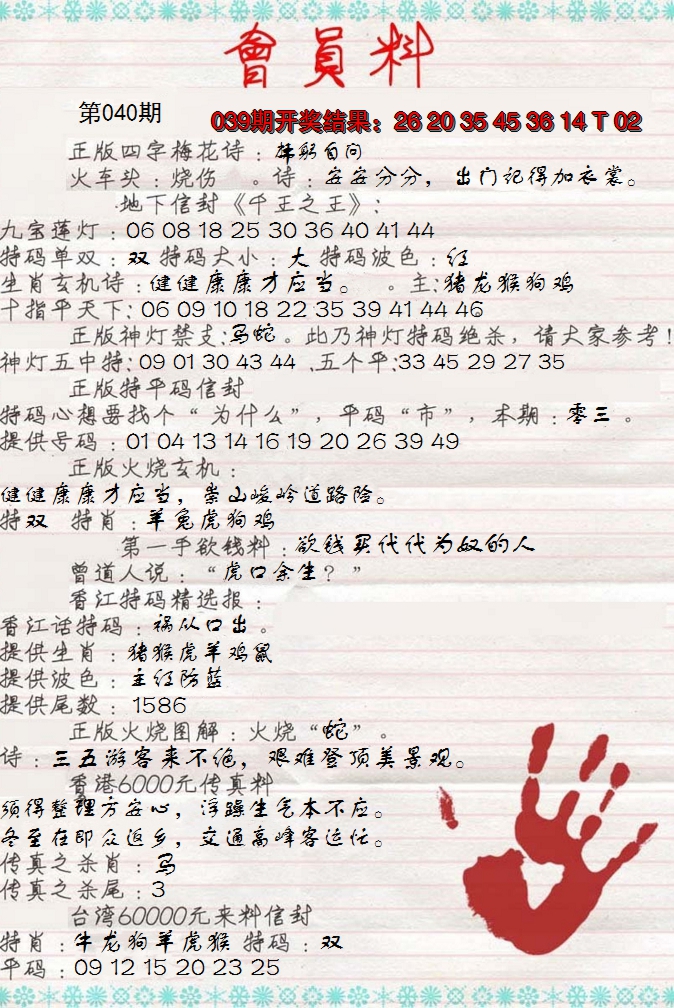 會員料
第040期
039期开奖结果：26 20 35 45 36 14 T 02
正版四字梅花诗：鞠躬自问
火车头：烧伤 。诗：安安分分，出门记得加衣裳。
.地下信封《千王之王》：
九宝莲灯：06 08 18 25 30 36 40 41 44
特码单双：双 特码大小：大 特码波色：红
生肖玄机诗：健健康康才应当。 。主:猪龙猴狗鸡
十指平天下：06 09 10 18 22 35 39 41 44 46
正版神灯禁支:马蛇。此乃神灯特码绝杀，请大家参考！
神灯五中特:09 01 30 43 44 .五个平:33 45 29 27 35
正版特平码信封
特码心想要找个“为什么”，平码“市”，本期：零三。
提供号码：01 04 13 14 16 19 20 26 39 49
正版火烧玄机：
健健康康才应当，崇山峻岭道路险。
特双 特肖：羊兔虎狗鸡
第一手欲钱料：欲钱买代代为奴的人
曾道人说：“虎口余生？”
香江特码精选报：
香江话特码：祸从口出。
提供生肖：猪猴虎羊鸡鼠
提供波色：主红防蓝
提供尾数：1586
正版火烧图解：火烧“蛇”。
诗：三五游客来不绝，艰难登顶美景观。
香港6000元传真料
须得整理方安心，浮躁生气本不应。
冬至在即众返乡，交通高峰客运忙。
传真之杀肖：马
传真之杀尾：3
台湾60000元来料信封
特肖：牛龙狗羊虎猴 特码：双
平码：09 12 15 20 23 25